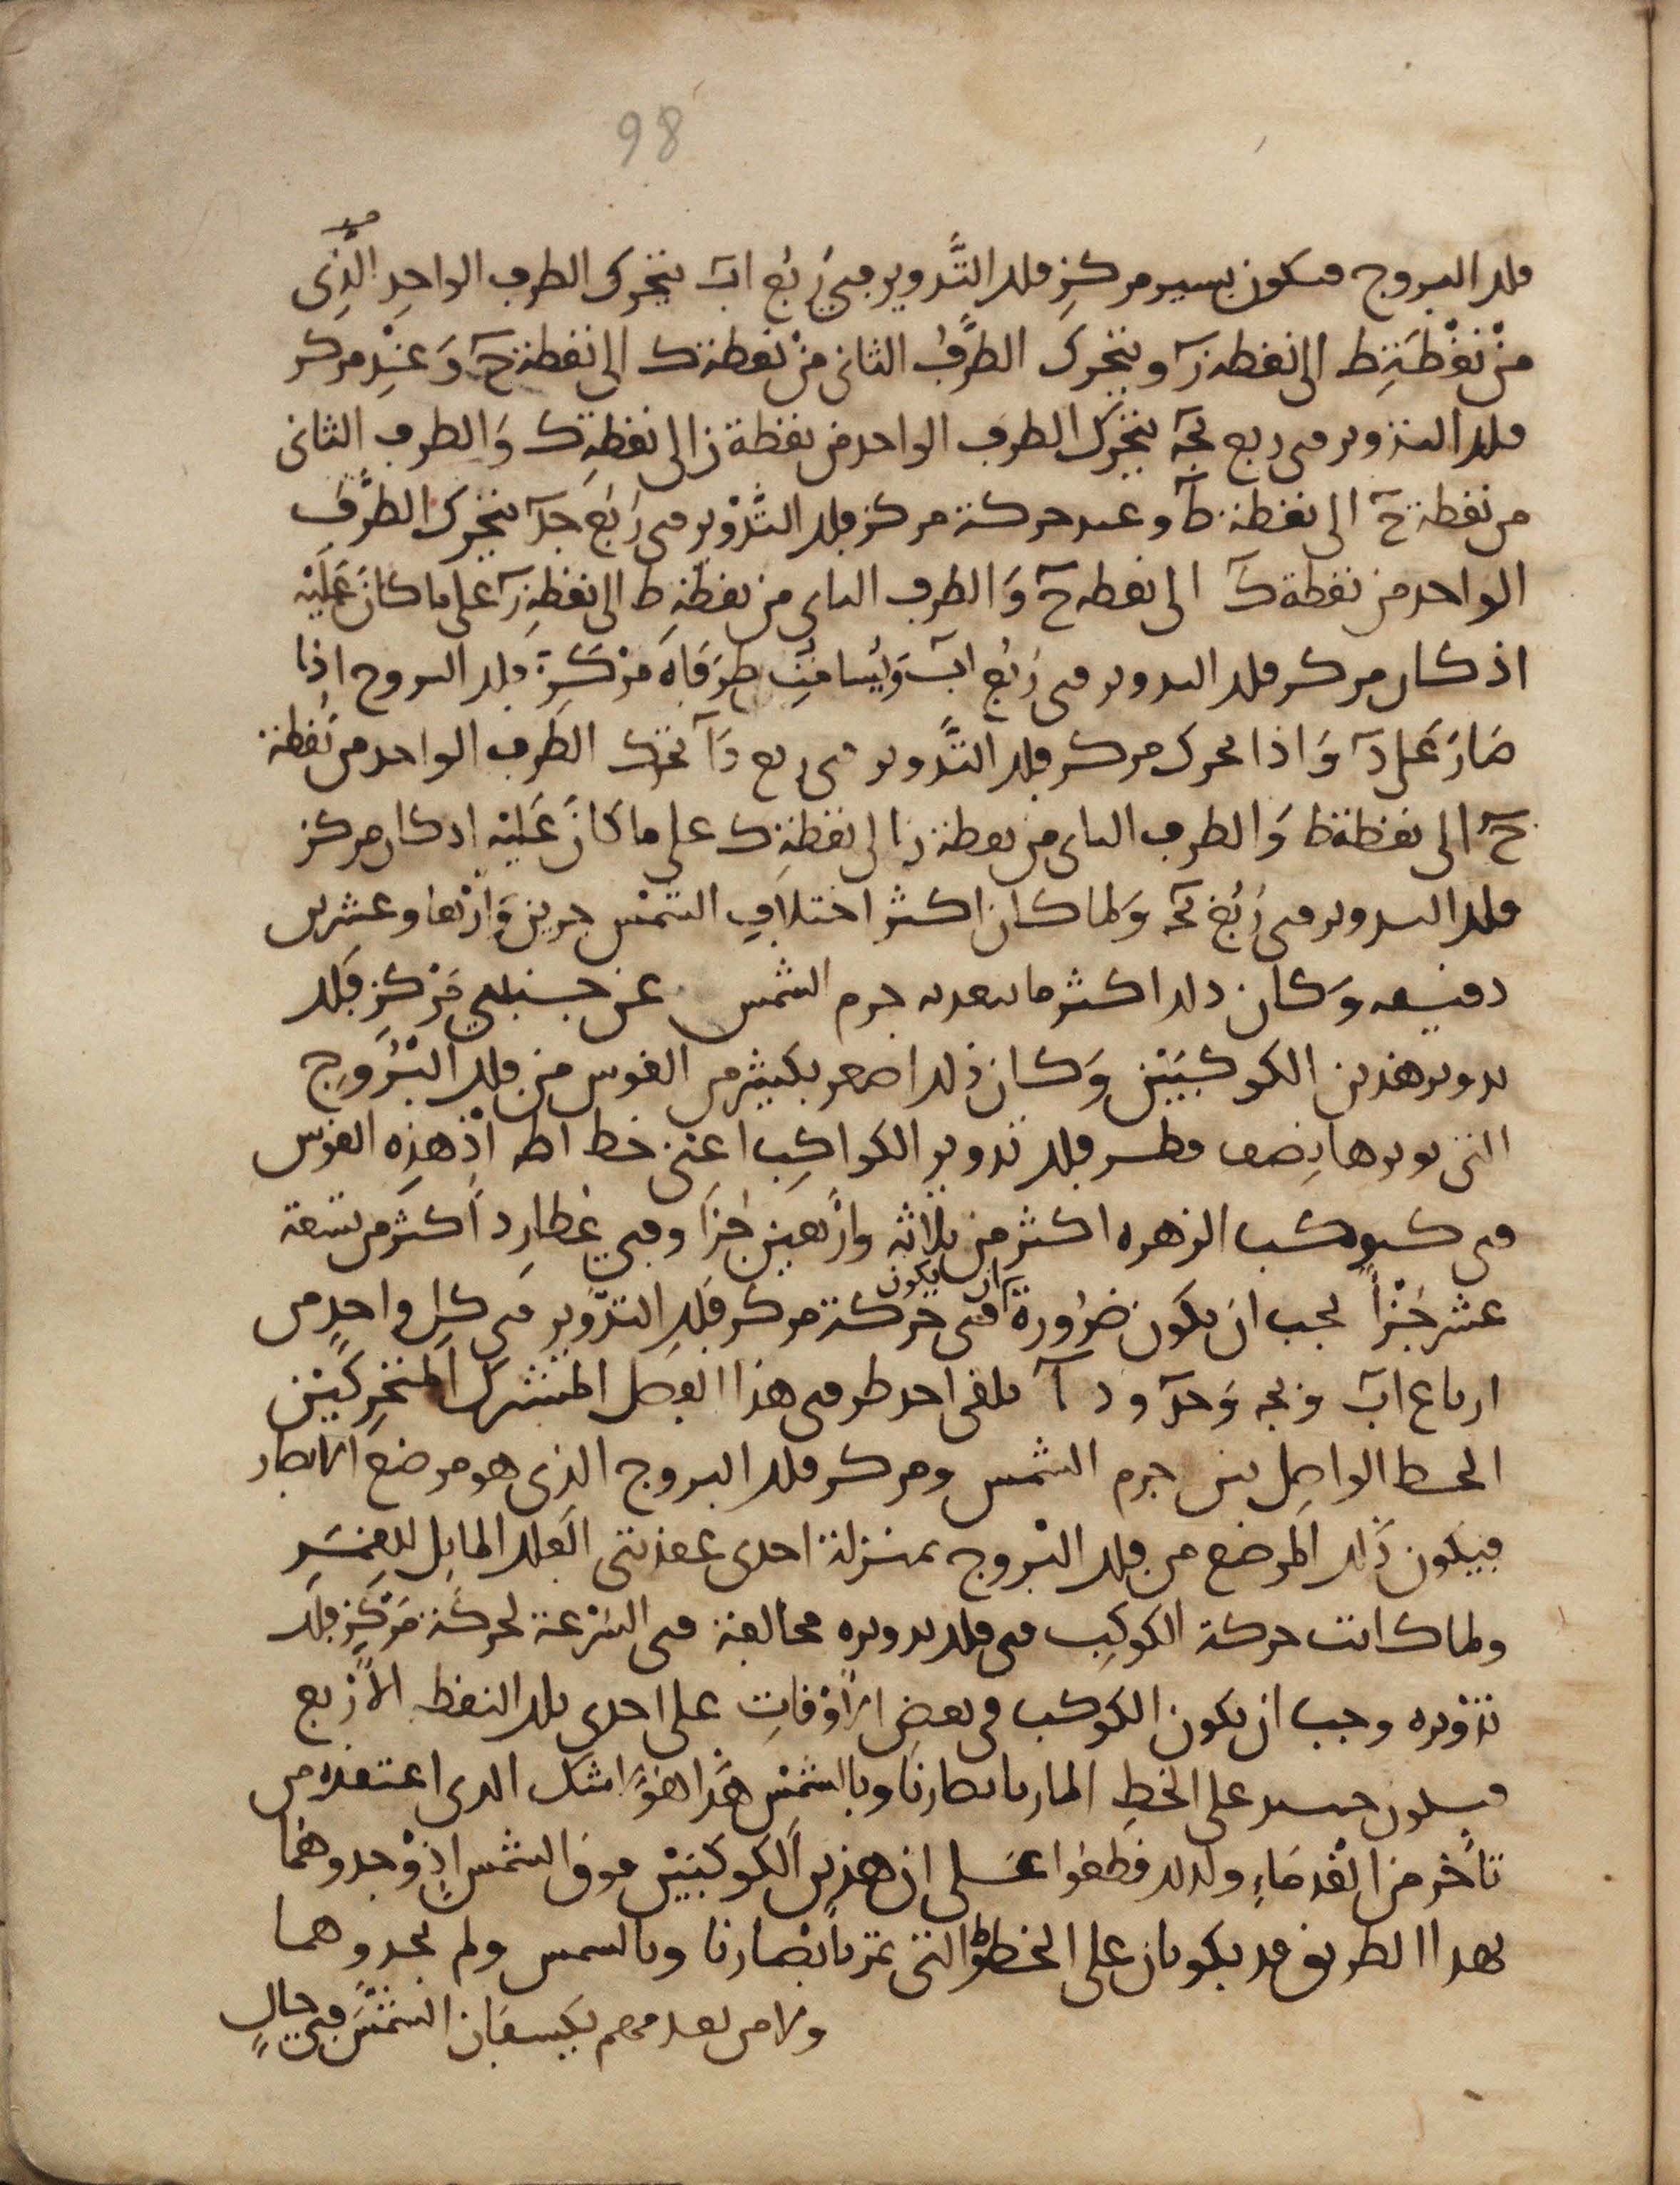 98
فلك البروج فيكون بسير مركزِ فلك التَّدوير في رُبُع اب يتحرك الطرف الواحِد الَّذِى
مِنْ نُقْطَةِ ط الى نقطة ز ويتحرك الطَّرفُ الثانى مِنْ نقطة ك الى نقطة ح وَعِنْدِ مركز
فلك التدوير فى ربع بج يتحرك الطرف الواحد من نقطة ز الى نقطة ك وَالطرف الثانى
من نقطة ح الى نقطة ط وعند حركة مركز فلك التَّدْوير فى رُبُع جد يتحرك الطَّرَف
الواحد من نقطة ك الى نقطه ح وَالطرف الثانى من نقطةِ ط الى نقطةِ ز على ما كانَ عَلَيْه
اذ كان مركز فلك التدوير فى رُبُع اب وَيُسامِتُ طرَفاهُ مَرْكَزَ فلك البروج اذا
صَارَ عَلى د وَاذا تحرك مركز فلك التَّدوير فى ربع دا تحرك الطرف الواحد من نُقطة
ح الى نقطة ط وَالطرف الثانى من نقطة ز الى نقطةِ ك على ما كانَ عَلَيْه اذ كان مركز
فلك التدوير فى رُبُع بج وَلما كان اكثر اختلافِ الشمْس جزءين وَارْبعا وعشرين
دقيقه وَكان ذلك اكثر ما يبعد به جرم الشمس عن جنبتي مَرْكزِ فَلك
تدوير هذين الكوكبَيْن وَكان ذلك اصغر بكثير من القوس من فلك البُرُوج
التى يوترها نِصف قطر فلك تدوير الكواكِب اعنى خط اط اذ هذِه القوس
فى كوكب الزهره اكثر من ثلاثه وارْبعين جُزءا وفي عُطارِد أكثر من تسعة
عشر جُزْأً يجب ان يكون ضرُورة ان يكون فى حركة مركز فَلكِ التدْوير فى كلِ واحِدٍ من
ارباع اب وبج وَجد ودا يلقى احد طرفى هذا الفصل المشترك المتحرِكَيْن
الخط الواصِل بين جرم الشمس ومركز فلك البروج الذى هو موضع الابصار
فيكون ذَلك الموضع من فلك البْروج بمنزلة احدى عقدتى الفَلك المايل للقمَرِ
ولما كانت حركة الكوكِب فى فلك تدويره مخالفة فى السُرْعة لحركة مَرْكزِ فلك
تدْويره وجب ان يكون الكوكب فى بعض الأوْقاتِ على احدى تلك النقط الأرْبع
فيكون حينيذ على الخطِ المار بابصارنا وبالشمْس هَذا هُوَ الشك الذى اعتقده من
تأخّر من القدمَاءِ ولذلك قطعوا عَلى ان هذين الكوكبَيْن فوق الشمس اذ وْجدوهُما
بهذا الطريق قد يكونان على الخطوط التى تمر بابْصارنا وبالشمس ولم يجدوهما
ولا من بعدهم يكسفَان الشمْسَ فى حالٍ